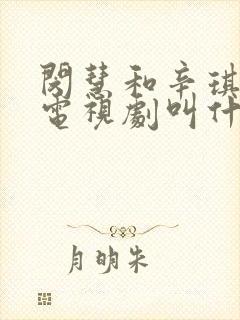 閔慧和辛琪
電視劇叫什
月明朱